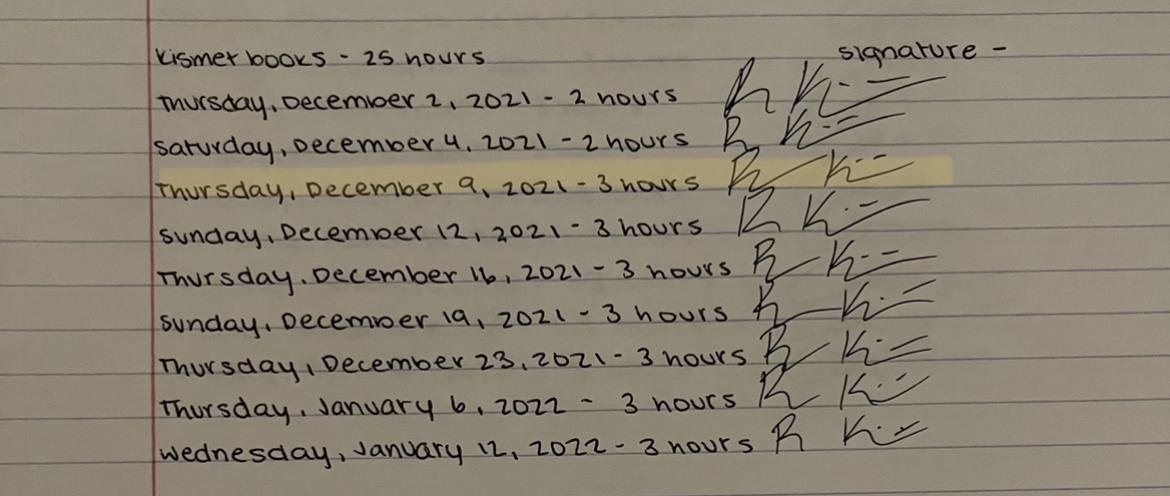 Kismet books - 25 hours
signature -
Thursday, December 2, 2021 - 2 hours
Saturday, December 4, 2021 - 2 hours
Thursday, December 9, 2021 - 3 hours
Sunday, December 12, 2021 - 3 hours
Thursday, December 16, 2021 - 3 hours
Sunday, December 19, 2021 - 3 hours
Thursday, December 23, 2021 - 3 hours
Thursday, January 6, 2022 - 3 hours
Wednesday, January 12, 2022 - 3 hours